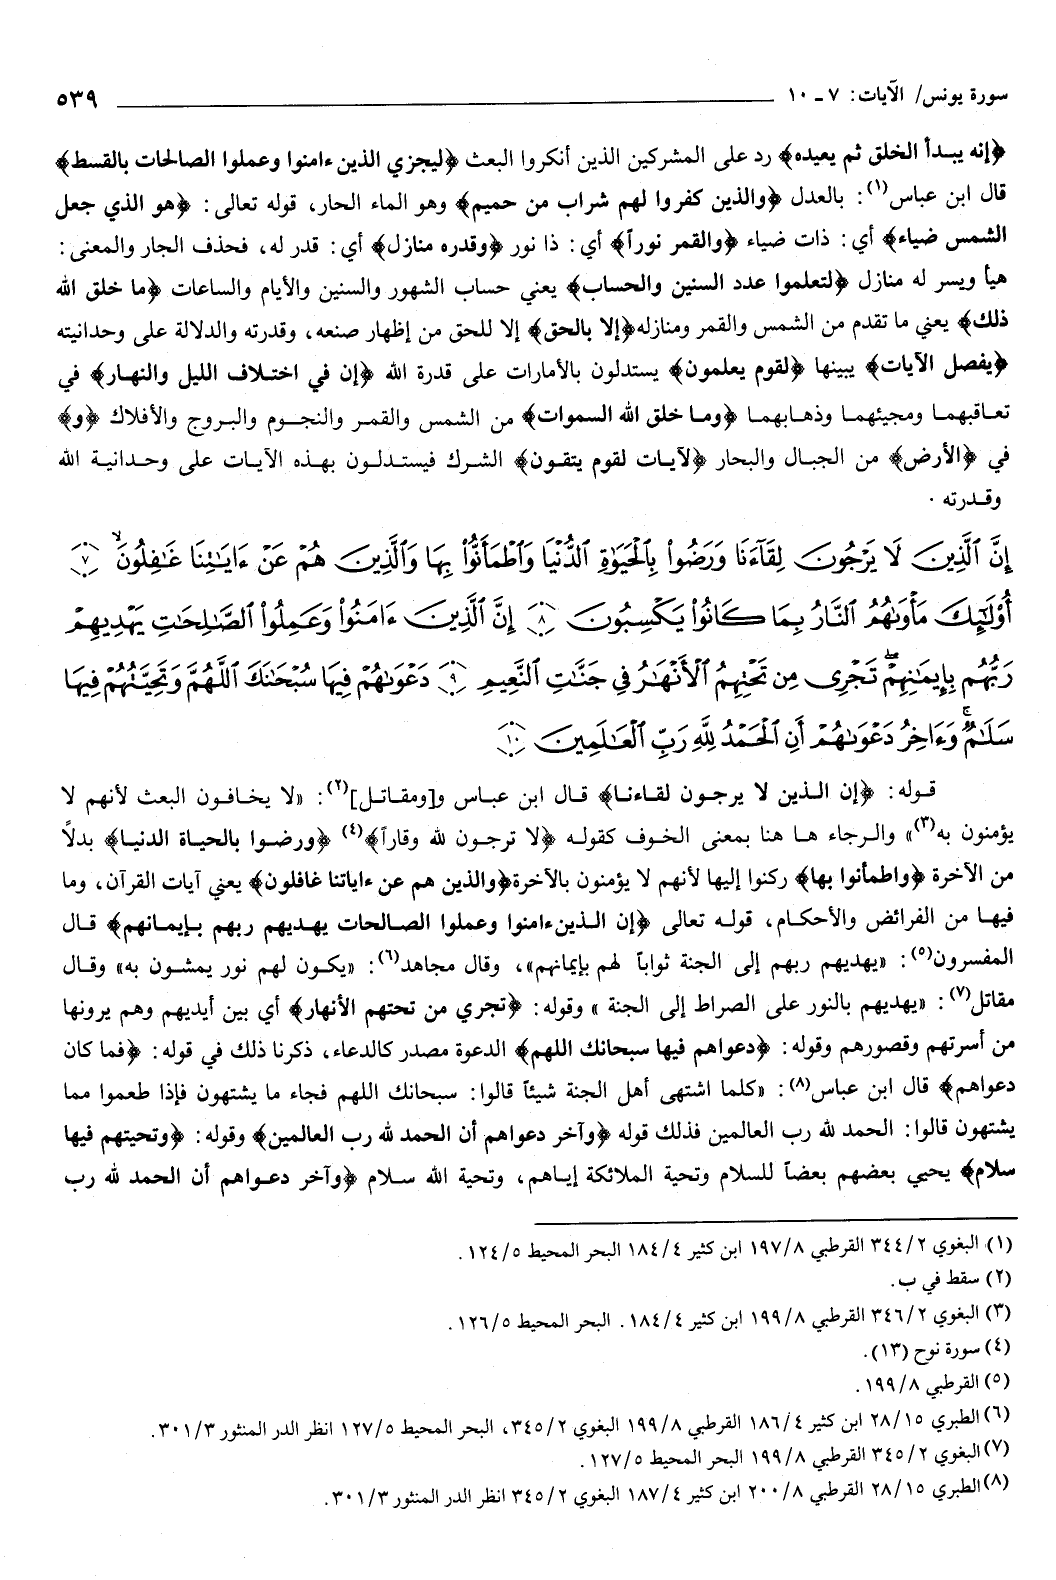 سورة يونس/ الآيات: ٧ ـ ١٠ ٥٣٩
﴿إنه يبدأ الخلق ثم يعيده﴾ رد على المشركين الذين أنكروا البعث ﴿ليجزي الذين ءامنوا وعملوا الصالحات بالقسط﴾
قال ابن عباس(١): بالعدل ﴿والذين كفروا لهم شراب من حميم﴾ وهو الماء الحار، قوله تعالى: ﴿هو الذي جعل
الشمس ضياء﴾ أي: ذات ضياء ﴿والقمر نوراً﴾ أي: ذا نور ﴿وقدره منازل﴾ أي: قدر له، فحذف الجار والمعنى:
هيأ ويسر له منازل ﴿لتعلموا عدد السنين والحساب﴾ يعني حساب الشهور والسنين والأيام والساعات ﴿ما خلق الله
ذلك﴾ يعني ما تقدم من الشمس والقمر ومنازله﴿إلا بالحق﴾ إلا للحق من إظهار صنعه، وقدرته والدلالة على وحدانيته
﴿يفصل الآيات﴾ يبينها ﴿لقوم يعلمون﴾ يستدلون بالأمارات على قدرة الله ﴿إن في اختـلاف الليل والنهـار﴾ في
تعـاقبهمـا ومجيئهمـا وذهـابهمـا ﴿ومـا خلق الله السموات﴾ من الشمس والقمـر والنجـوم والبـروج والأفلاك ﴿و﴾
في ﴿الأرض﴾ من الجبال والبحار ﴿لآيـات لقوم يتقـون﴾ الشـرك فيستـدلـون بهـذه الآيـات على وحـدانيـة الله
وقـدرته .
إِنَّ ٱلَّذِينَ لَا يَرْجُونَ لِقَآءَنَا وَرَضُوا۟ بِٱلْحَيَوٰةِ ٱلدُّنْيَا وَٱطْمَأَنُّوا۟ بِهَا وَٱلَّذِينَ هُمْ عَنْ ءَايَـٰتِنَا غَـٰفِلُونَ ۙ ٧
أُو۟لَـٰٓئِكَ مَأْوَىٰهُمُ ٱلنَّارُ بِمَا كَانُوا۟ يَكْسِبُونَ ٨ إِنَّ ٱلَّذِينَ ءَامَنُوا۟ وَعَمِلُوا۟ ٱلصَّـٰلِحَـٰتِ يَهْدِيهِمْ
رَبُّهُم بِإِيمَـٰنِهِمْ ۖ تَجْرِى مِن تَحْتِهِمُ ٱلْأَنْهَـٰرُ فِى جَنَّـٰتِ ٱلنَّعِيمِ ٩ دَعْوَىٰهُمْ فِيهَا سُبْحَـٰنَكَ ٱللَّهُمَّ وَتَحِيَّتُهُمْ فِيهَا
سَلَـٰمٌ ۚ وَءَاخِرُ دَعْوَىٰهُمْ أَنِ ٱلْحَمْدُ لِلَّهِ رَبِّ ٱلْعَـٰلَمِينَ ١٠
قـوله: ﴿إن الـذين لا يرجـون لقـاءنـا﴾ قـال ابن عبـاس و[ومقـاتـل](٢): «لا يخـافـون البعث لأنهم لا
يؤمنون به(٣)» والـرجاء هـا هنا بمعنى الخـوف كقولـه ﴿لا ترجـون لله وقاراً﴾(٤) ﴿ورضـوا بالحيـاة الدنيـا﴾ بدلاً
من الآخرة ﴿واطمأنوا بها﴾ ركنوا إليها لأنهم لا يؤمنون بالآخرة﴿والذين هم عن ءاياتنا غافلون﴾ يعني آيات القرآن، وما
فيهـا من الفرائض والأحكـام، قولـه تعالى ﴿إن الـذين ءامنوا وعملوا الصـالحات يهـديهم ربهم بـإيمـانهم﴾ قـال
المفسرون(٥): «يهديهم ربهم إلى الجنة ثواباً لهم بإيمانهم»، وقال مجاهد(٦): «يكـون لهم نور يمشـون به» وقـال
مقاتل(٧): «يهديهم بالنور على الصراط إلى الجنة » وقوله: ﴿تجري من تحتهم الأنهار﴾ أي بين أيديهم وهم يرونها
من أسرتهم وقصورهم وقوله: ﴿دعواهم فيها سبحانك اللهم﴾ الدعوة مصدر كالدعاء، ذكرنا ذلك في قوله: ﴿فما كان
دعواهم﴾ قال ابن عباس(٨): «كلما اشتهى أهل الجنة شيئاً قالوا: سبحانك اللهم فجاء ما يشتهون فإذا طعموا مما
يشتهون قالوا: الحمد لله رب العالمين فذلك قوله ﴿وآخر دعواهم أن الحمد لله رب العالمين﴾ وقوله: ﴿وتحيتهم فيها
سلام﴾ يحيي بعضهم بعضاً للسلام وتحية الملائكة إيـاهم، وتحية الله سـلام ﴿وآخر دعـواهم أن الحمـد لله رب
(١) البغوي ٣٤٤/٢ القرطبي ١٩٧/٨ ابن كثير ١٨٤/٤ البحر المحيط ١٢٤/٥ .
(٢) سقط في ب.
(٣) البغوي ٣٤٦/٢ القرطبي ١٩٩/٨ ابن كثير ١٨٤/٤ . البحر المحيط ١٢٦/٥ .
(٤) سورة نوح (١٣).
(٥) القرطبي ١٩٩/٨ .
(٦) الطبري ٢٨/١٥ ابن كثير ١٨٦/٤ القرطبي ١٩٩/٨ البغوي ٣٤٥/٢، البحر المحيط ١٢٧/٥ انظر الدر المنثور ٣٠١/٣ .
(٧) البغوي ٣٤٥/٢ القرطبي ١٩٩/٨ البحر المحيط ١٢٧/٥ .
(٨) الطبري ٢٨/١٥ القرطبي ٢٠٠/٨ ابن كثير ١٨٧/٤ البغوي ٣٤٥/٢ انظر الدر المنثور ٣٠١/٣ .